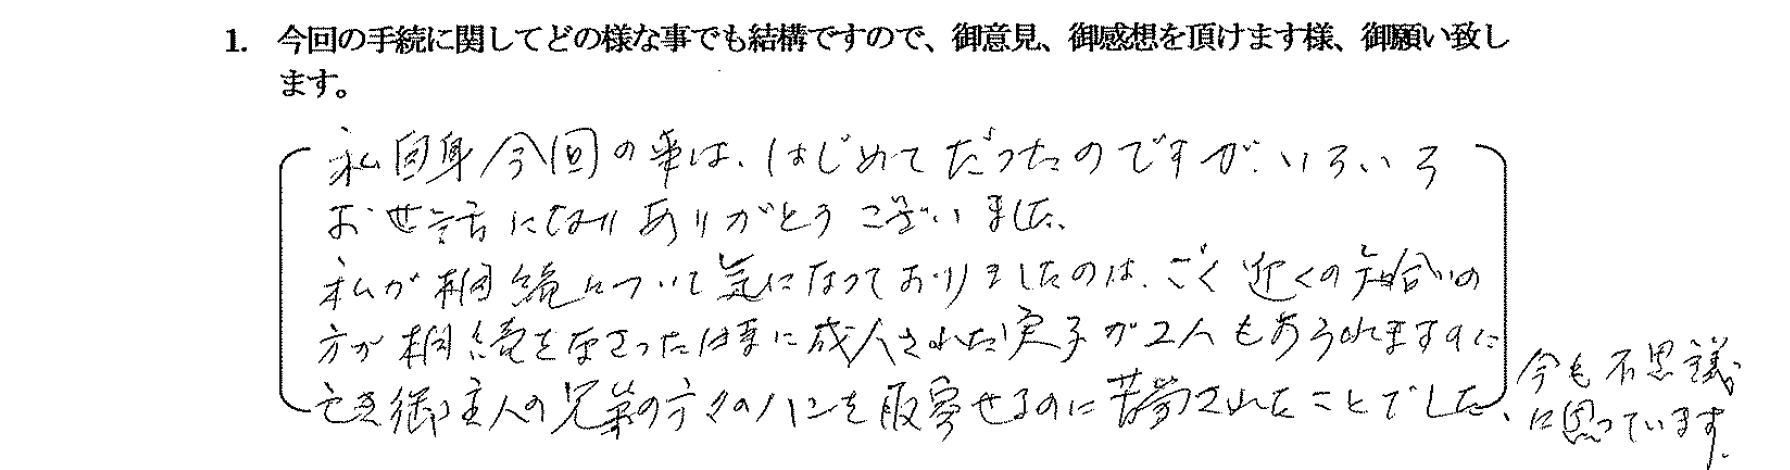 1. 今回の手続に関してどの様な事でも結構ですので、御意見、御感想を頂けます様、御願い致し
ます。
私自身今回の事は、はじめてだったのですが、いろいろ
お世話になりありがとうございました。
私が相続について気になっておりましたのは、ごく近くの知合いの
方が相続をなさった時に成人された実子が2人もあられますのに
亡き御主人の兄弟の方々のハンを取寄せるのに苦労されたことでした、
今も不思議
に思っています。